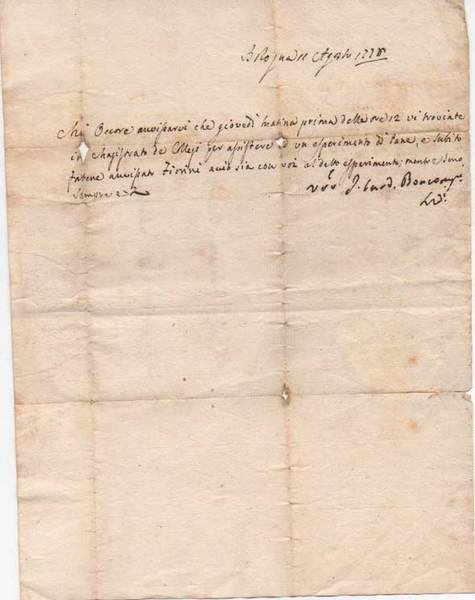 Bologna 11 Agosto 1778
Mi Occore avvisarvi che giovedì matina prima delle ore 12 vi troviate
in Magistrato de Collegi per assistere ad un esperimento di Pane, e subito
fatene avvisato Fiorini acciò sia con voi al detto esperimento; mentre sono
sempre
J. Card. Boncomp.